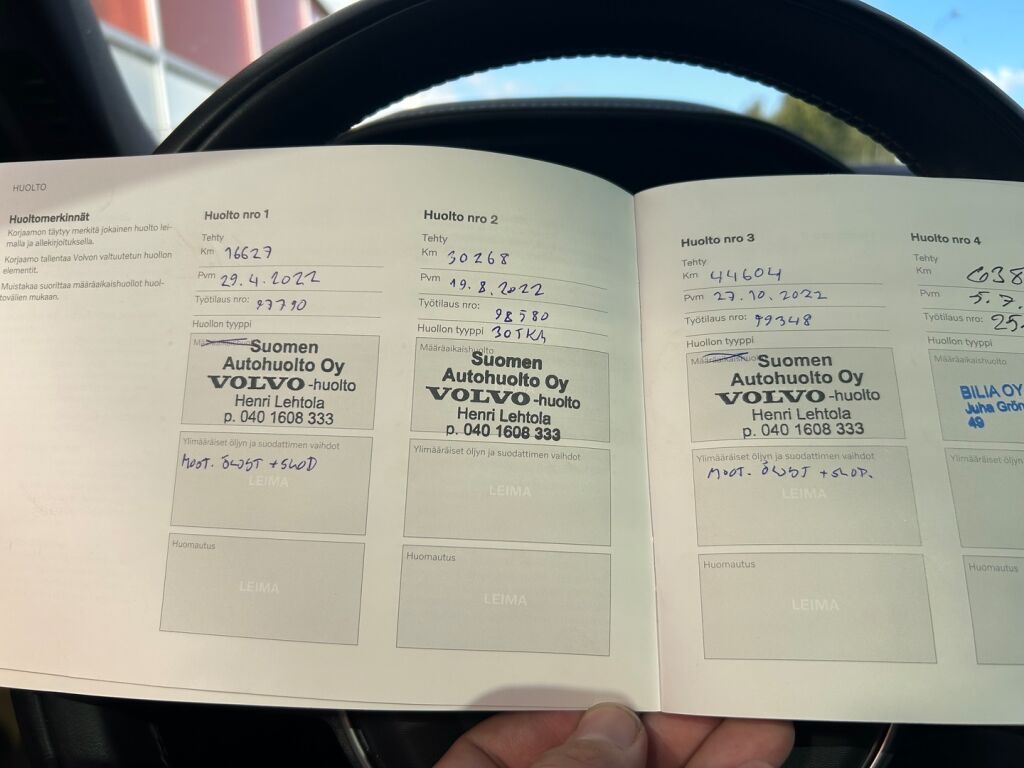 HUOLTO
Huoltomerkinnät
Korjaamon täytyy merkitä jokainen huolto lei-
malla ja allekirjoituksella.
Korjaamo tallentaa Volvon valtuutetun huollon
elementit.
Muistakaa suorittaa määräaikaishuollot huol-
tovälien mukaan.
Huolto nro 1
Tehty
Km 16627
Pvm 29.4.2022
Työtilaus nro: 97790
Huollon tyyppi
Suomen
Autohuolto Oy
VOLVO-huolto
Henri Lehtola
p. 040 1608 333
Ylimääräiset öljyn ja suodattimen vaihdot
MOOT. ÖLJYT + SUOD
LEIMA
Huomautus
LEIMA
Huolto nro 2
Tehty
Km 30268
Pvm 19.8.2022
Työtilaus nro: 98580
Huollon tyyppi 30TKM
Määräaikaishuolto
Suomen
Autohuolto Oy
VOLVO-huolto
Henri Lehtola
p. 040 1608 333
Ylimääräiset öljyn ja suodattimen vaihdot
LEIMA
Huomautus
LEIMA
Huolto nro 3
Tehty
Km 44604
Pvm 27.10.2022
Työtilaus nro: 99348
Huollon tyyppi
Määräaikaishuolto
Suomen
Autohuolto Oy
VOLVO-huolto
Henri Lehtola
p. 040 1608 333
Ylimääräiset öljyn ja suodattimen vaihdot
MOOT. ÖLJYT + SUOD.
LEIMA
Huomautus
LEIMA
Huolto nro 4
Tehty
Km 6038
Pvm 5.7.
Työtilaus nro: 25.
Huollon tyyppi
Määräaikaishuolto
BILIA OY
Juha Grön
49
Ylimääräiset öljyn
Huomautus